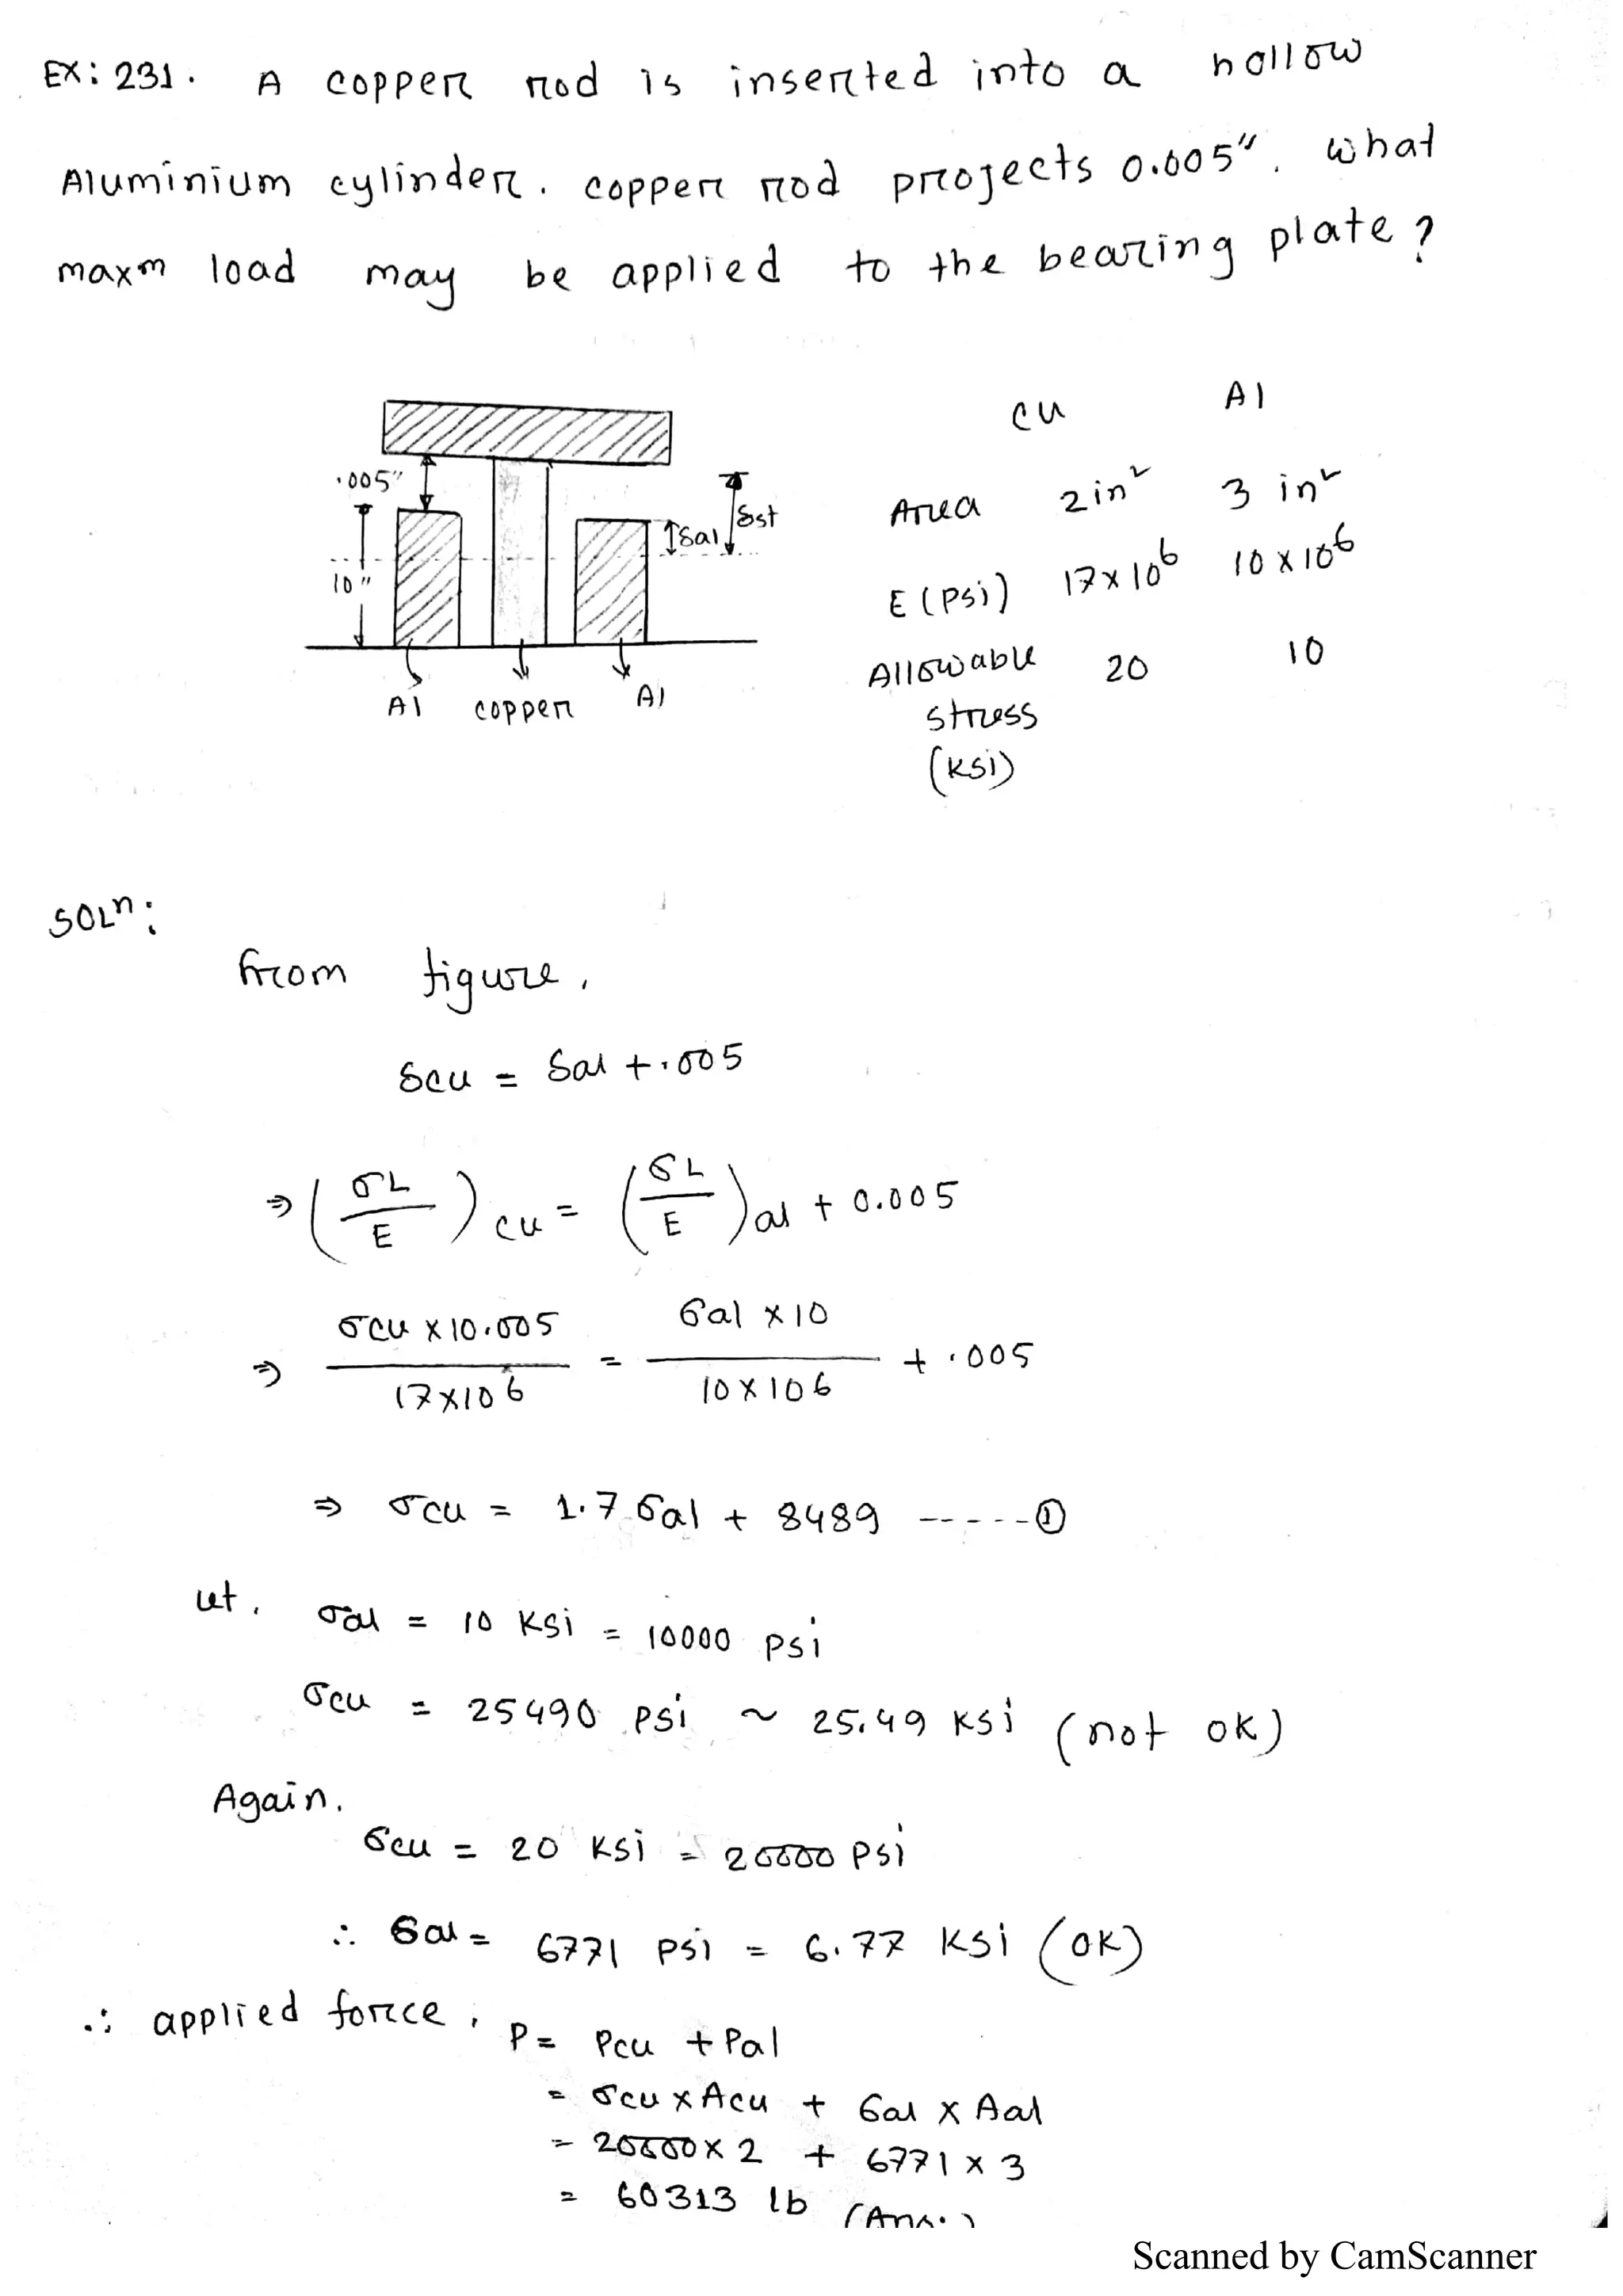 EX: 231. A copper rod is inserted into a hollow
Aluminium cylinder. copper rod projects 0.005". what
maxm load may be applied to the bearing plate?
cu Al
.005"
Area 2 in² 3 in²
δal δst
10"
E (psi) 17 x 10⁶ 10 x 10⁶
Allowable 20 10
stress
(ksi)
Al copper Al
SOLⁿ:
from figure,
δcu = δal + .005
⇒ (σL/E)cu = (σL/E)al + 0.005
⇒ σcu x 10.005 / 17x10⁶ = σal x 10 / 10 x 10⁶ + .005
⇒ σcu = 1.7 σal + 8489 ------①
let, σal = 10 ksi = 10000 psi
σcu = 25490 psi ~ 25.49 ksi (not ok)
Again,
σcu = 20 ksi = 20000 psi
∴ σal = 6771 psi = 6.77 ksi (OK)
∴ applied force, P = Pcu + Pal
= σcu x Acu + σal x Aal
= 20000 x 2 + 6771 x 3
= 60313 lb (Ans.)
Scanned by CamScanner